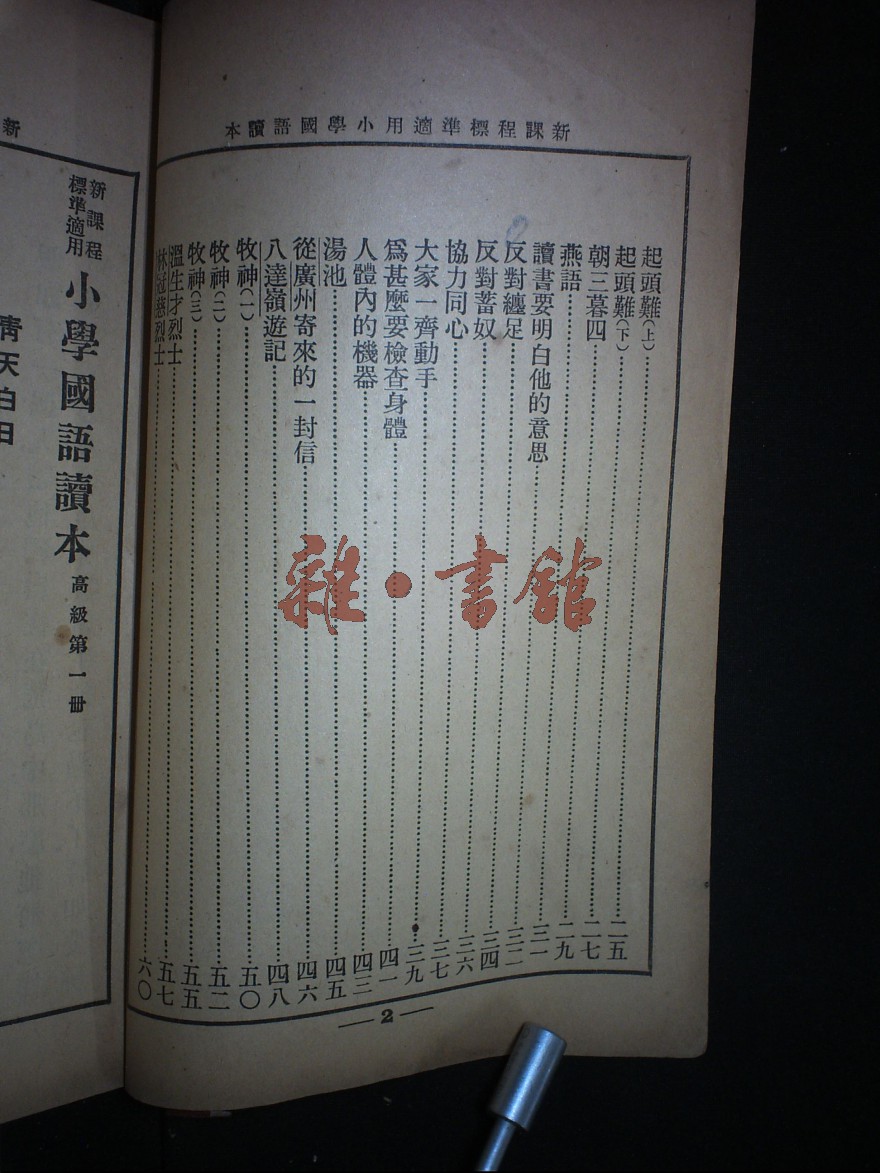 新課程標準適用小學國語讀本
起頭難(上)……二五
起頭難(下)……二七
朝三暮四……二九
燕語……三一
讀書要明白他的意思……三二
反對纏足……三四
反對蓄奴……三六
協力同心……三七
大家一齊動手……三九
爲甚麼要檢查身體……四一
人體內的機器……四三
湯池……四五
從廣州寄來的一封信……四六
八達嶺遊記……四八
牧神(一)……五〇
牧神(二)……五二
牧神(三)……五五
溫生才烈士……五七
林冠慈烈士……六〇
— 2 —
新
新課程標準適用
小學國語讀本 高級第一冊
青天白日
雜·書館